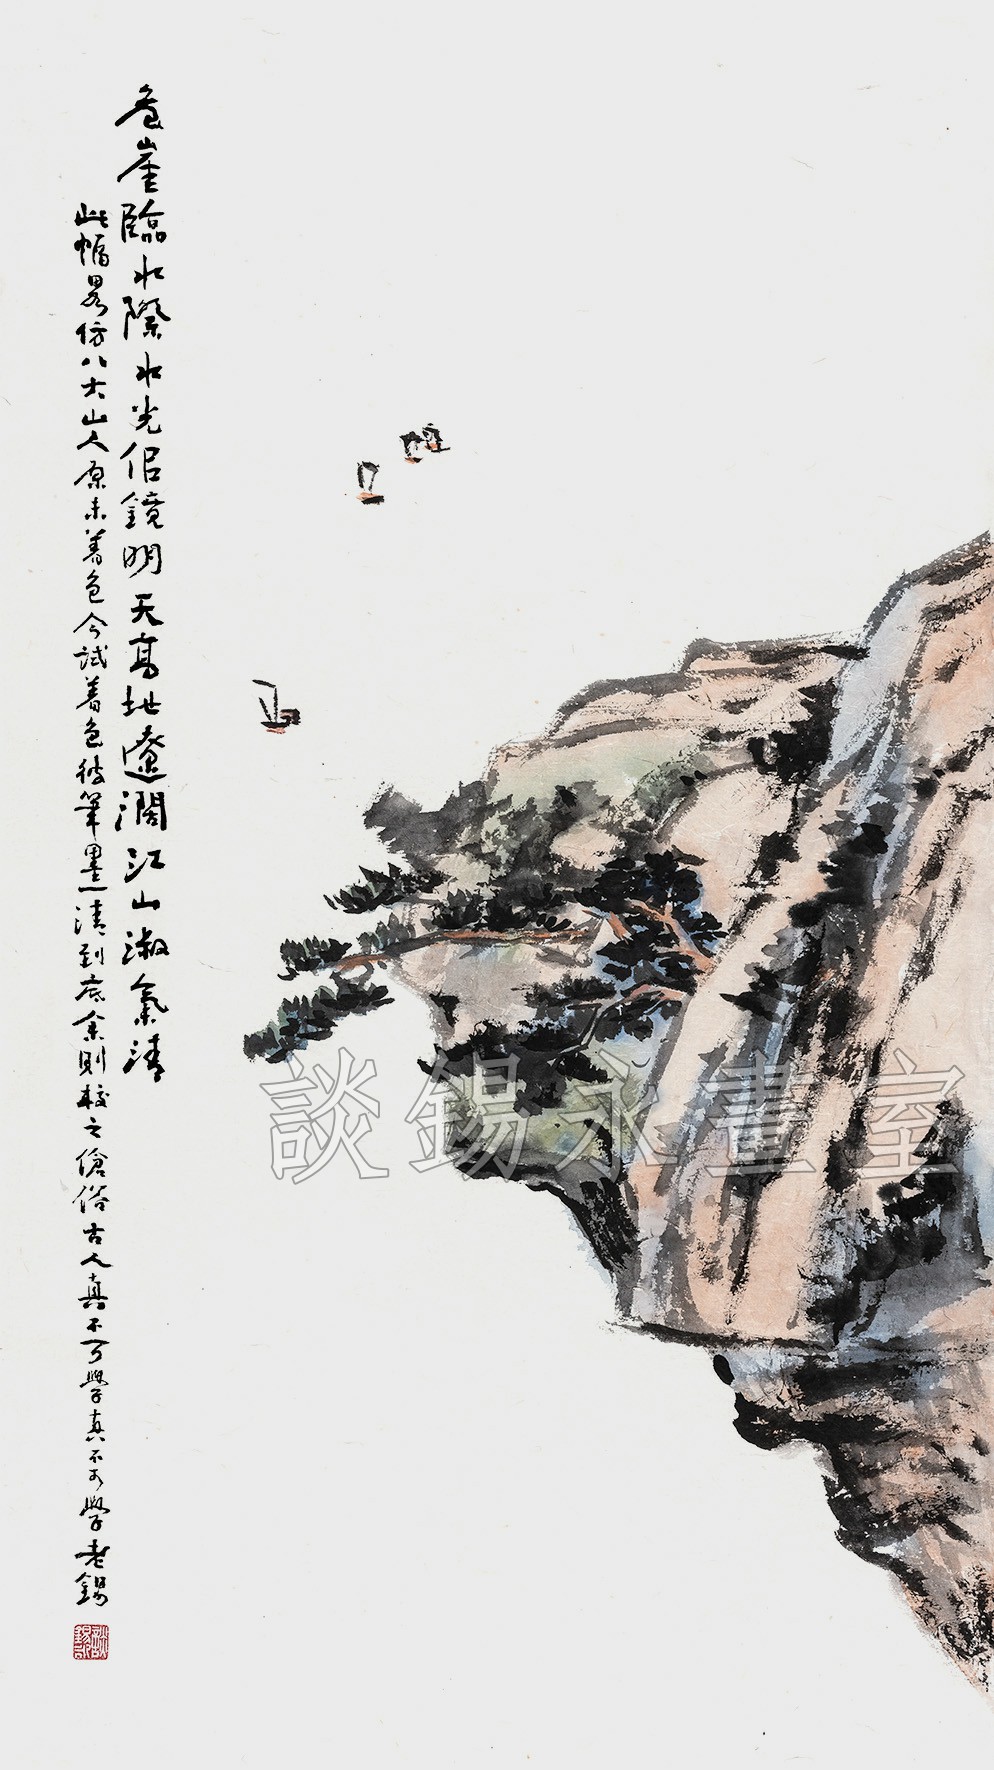 危崖臨水際水光佀鏡明天高地遼濶江山淑氣清
此幅畧仿八大山人原未着色今試着色彼筆墨清到底余則較之傖俗古人真不可學真不可學老錫
談錫永
談錫永畫室